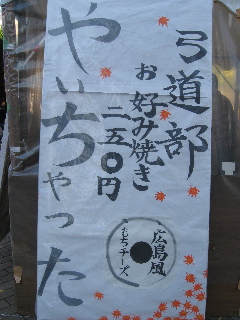 弓道部
お好み焼き
二五〇円
やいちゃった
広島風
もちチーズ